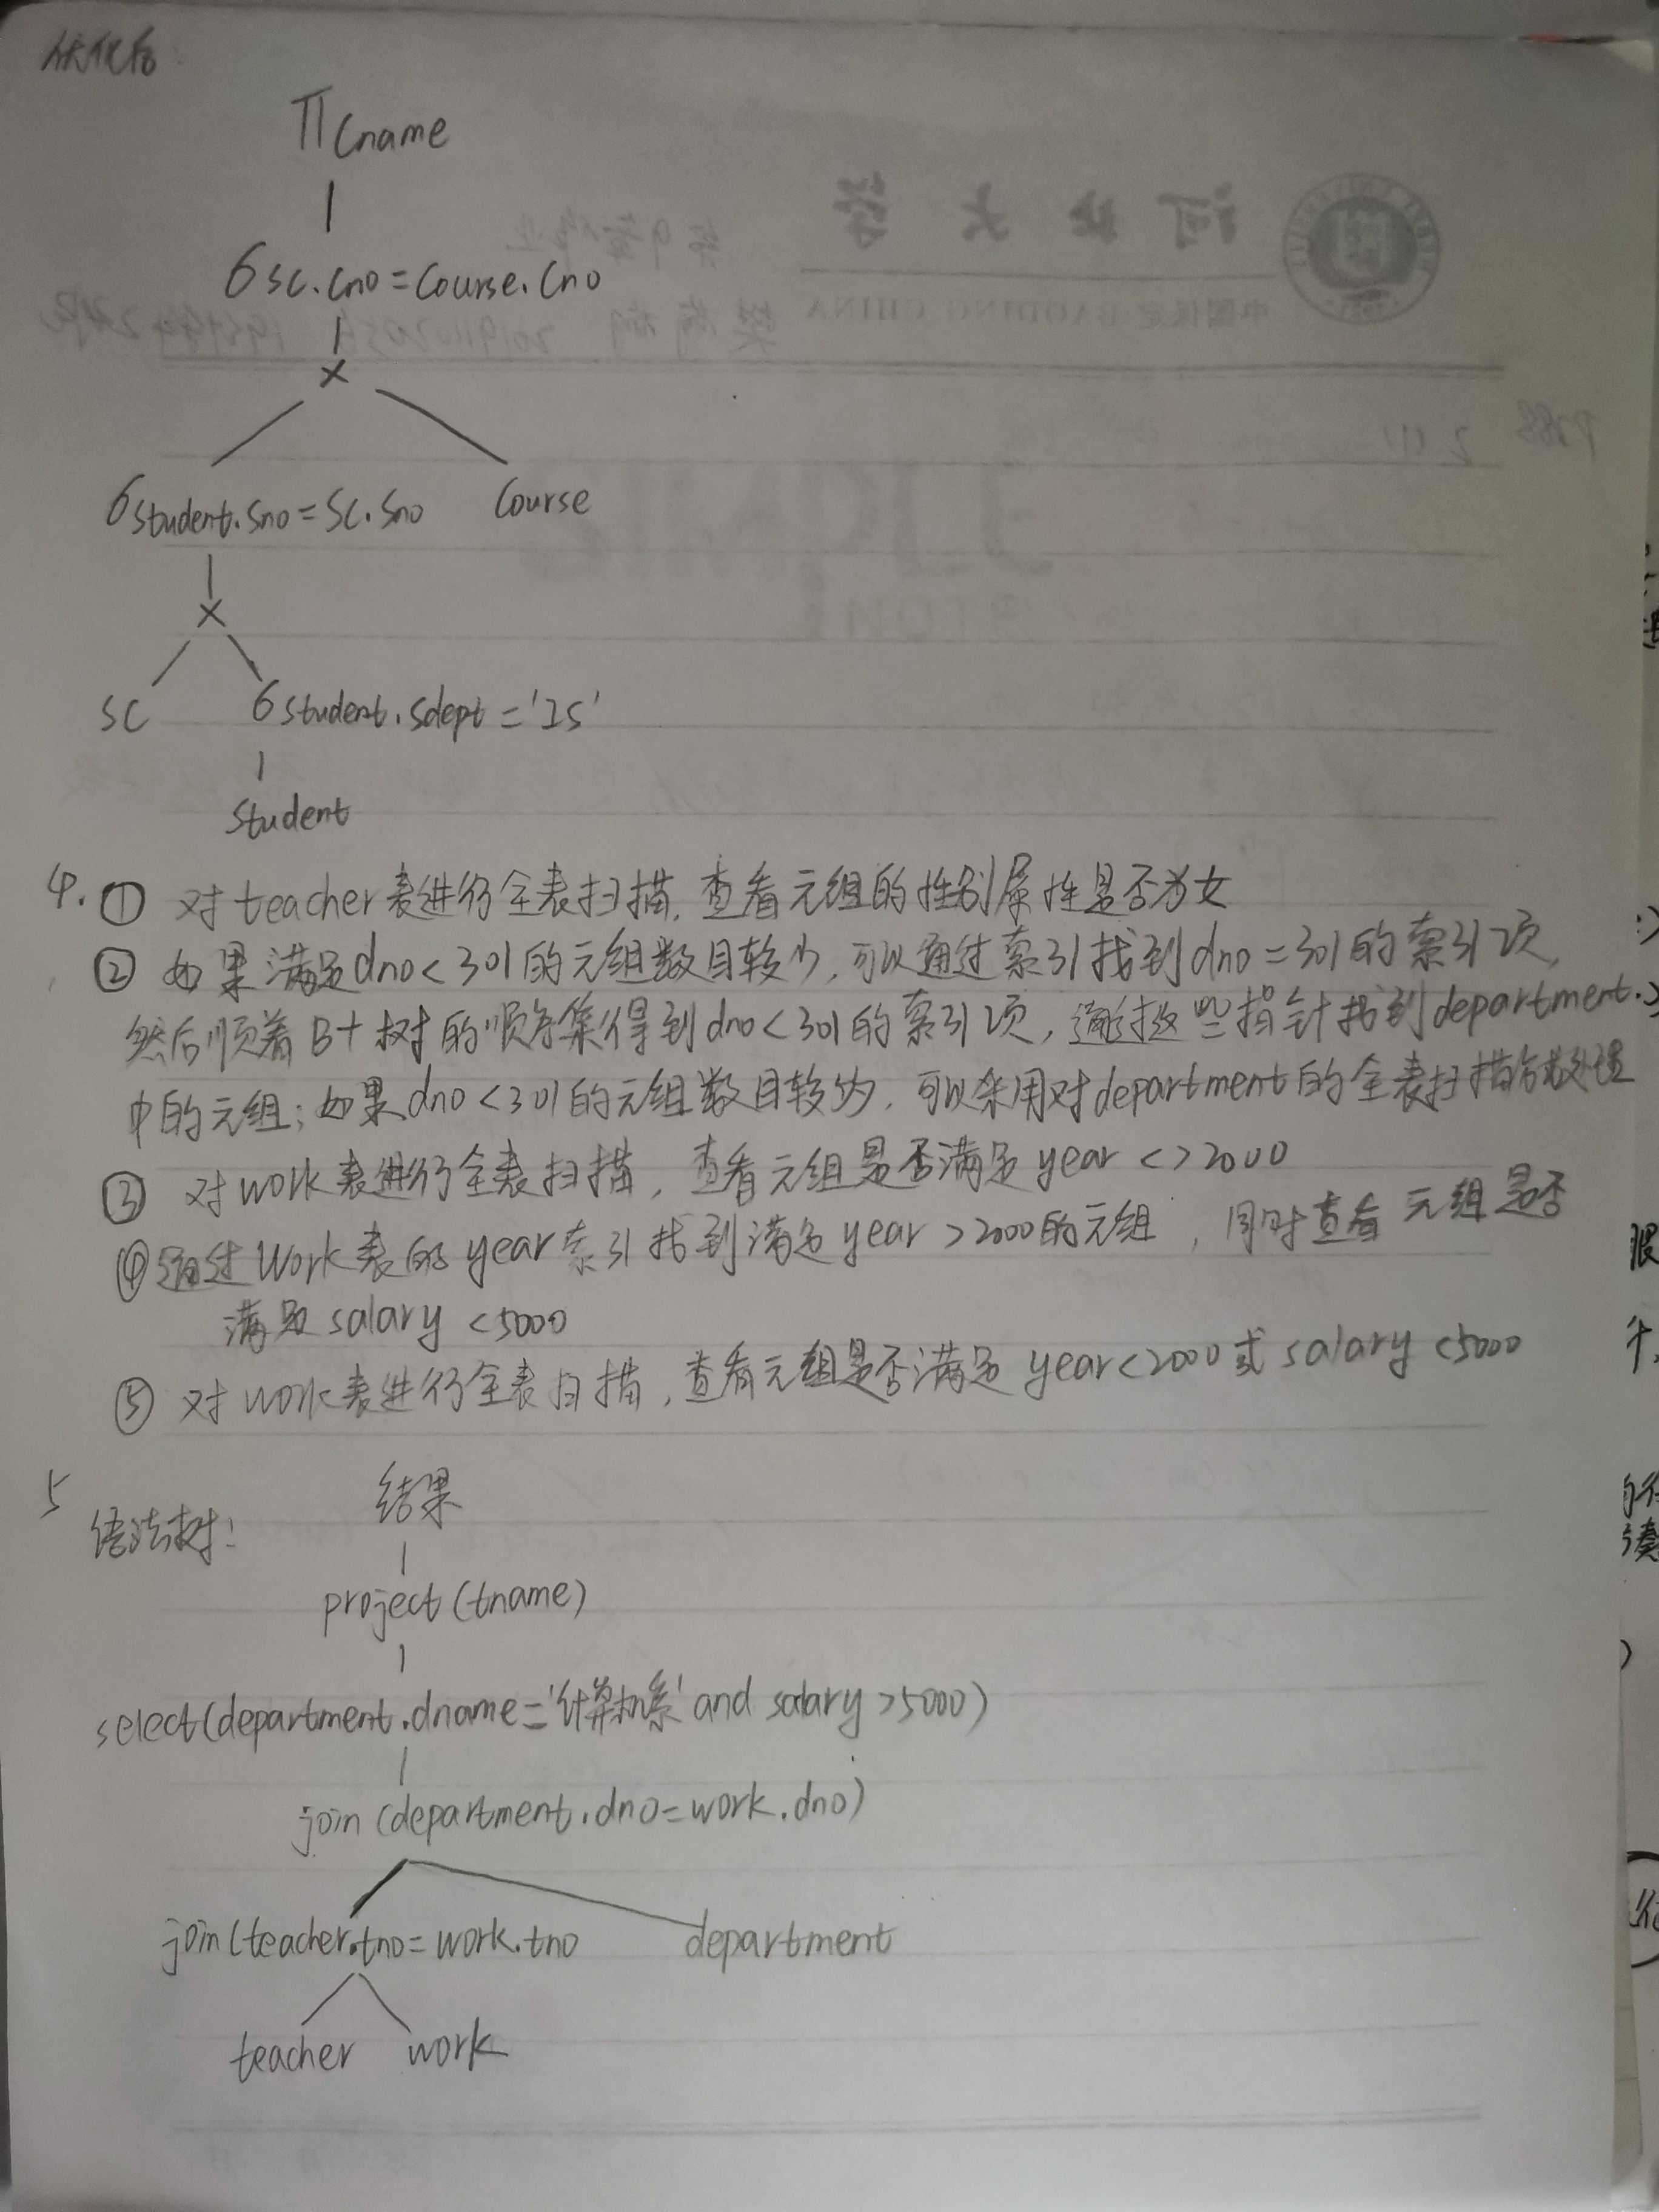 优化后:
Π Cname
σ SC.Cno=Course.Cno
×
σ Student.Sno=SC.Sno Course
×
SC σ Student.Sdept='IS'
Student
4. ① 对teacher表进行全表扫描,查看元组的性别属性是否为女
② 如果满足dno<301的元组数目较少,可以通过索引找到dno=301的索引项,
然后顺着B+树的顺序集得到dno<301的索引项,通过这些指针找到department
中的元组;如果dno<301的元组数目较多,可以采用对department的全表扫描方式处理
③ 对work表进行全表扫描,查看元组是否满足year<>2000
④通过Work表的year索引找到满足year>2000的元组,同时查看元组是否
满足salary<5000
⑤ 对work表进行全表扫描,查看元组是否满足year<2000或salary<5000
5
语法树: 结果
project(tname)
select(department.dname='计算机系' and salary>5000)
join(department.dno=work.dno)
join(teacher.tno=work.tno department
teacher work